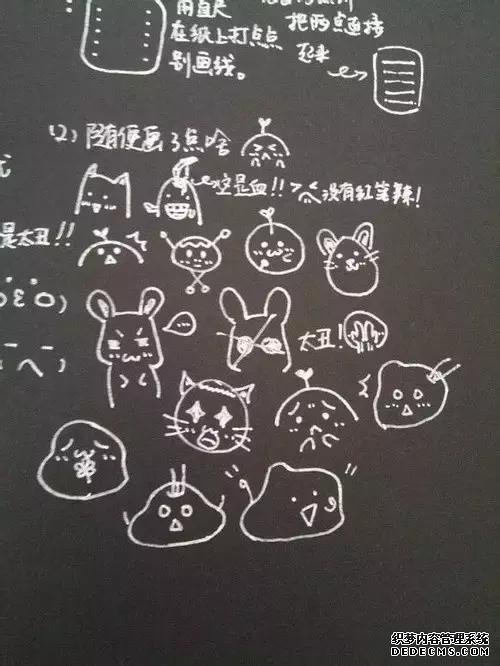 用直尺
把两点连接
在纸上打点点
起来
别画线。
(2) 随便画了点啥
这是血!!
没有红笔辣!
是太丑!!
太丑!
织梦内容管理系统
DEDECMS.COM